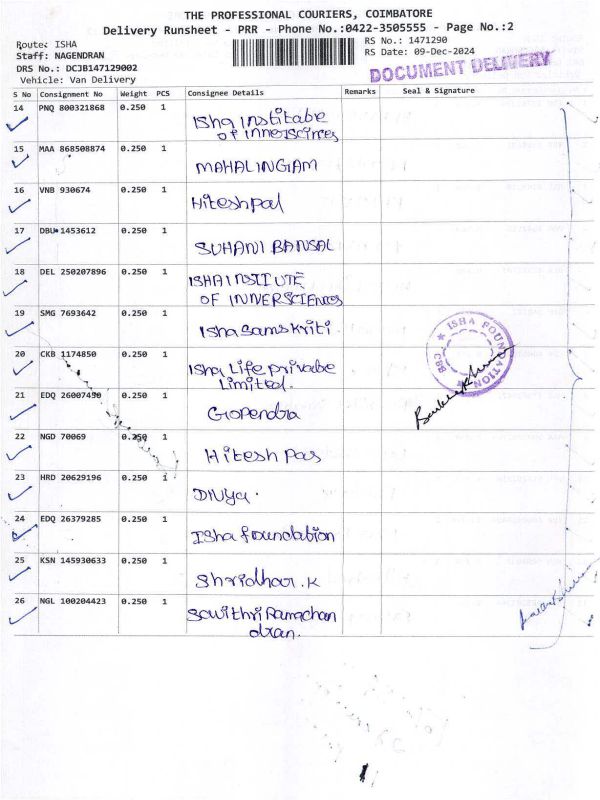 THE PROFESSIONAL COURIERS, COIMBATORE
Delivery Runsheet - PRR - Phone No.:0422-3505555 - Page No.:2
Route: ISHA
Staff: NAGENDRAN
DRS No.: DCJB147129002
Vehicle: Van Delivery
RS No.: 1471290
RS Date: 09-Dec-2024
DOCUMENT DELIVERY
S No Consignment No Weight PCS Consignee Details Remarks Seal & Signature
14 PNQ 800321868 0.250 1 Isha Institabe
of innersciences
15 MAA 868508874 0.250 1 MAHALINGAM
16 VNB 930674 0.250 1 Hiteshpal
17 DBU 1453612 0.250 1 SUHANI BANSAL
18 DEL 250207896 0.250 1 ISHA INSTIUTE
OF INNERSCIENCES
19 SMG 7693642 0.250 1 Isha Samskriti.
20 CKB 1174850 0.250 1 Isha Life private
Limitted.
ISHA FOUNDATION
21 EDQ 26007490 0.250 1 Gopendra
22 NGD 70069 0.250 1 Hitesh Pas
23 HRD 20629196 0.250 1 Divya.
24 EDQ 26379285 0.250 1 Isha foundation
25 KSN 145930633 0.250 1 Shridhar.K
26 NGL 100204423 0.250 1 Sawithri Ramachan
dran.